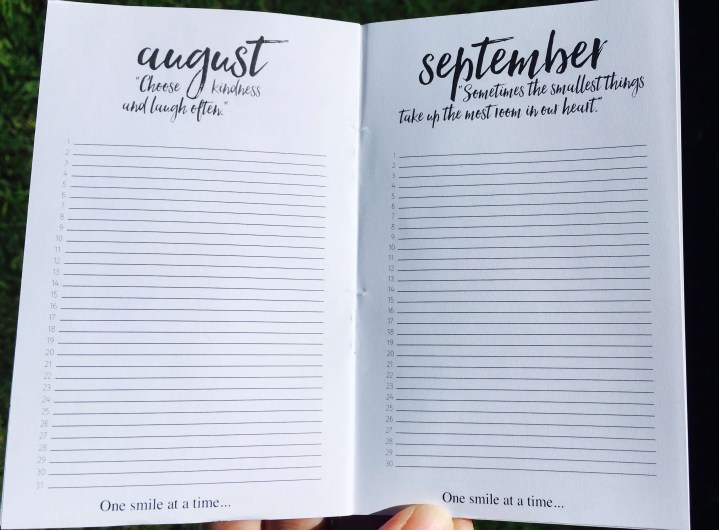 august
"Choose kindness
and laugh often."
1
2
3
4
5
6
7
8
9
10
11
12
13
14
15
16
17
18
19
20
21
22
23
24
25
26
27
28
29
30
31
One smile at a time...
september
"Sometimes the smallest things
take up the most room in our heart."
1
2
3
4
5
6
7
8
9
10
11
12
13
14
15
16
17
18
19
20
21
22
23
24
25
26
27
28
29
30
One smile at a time...